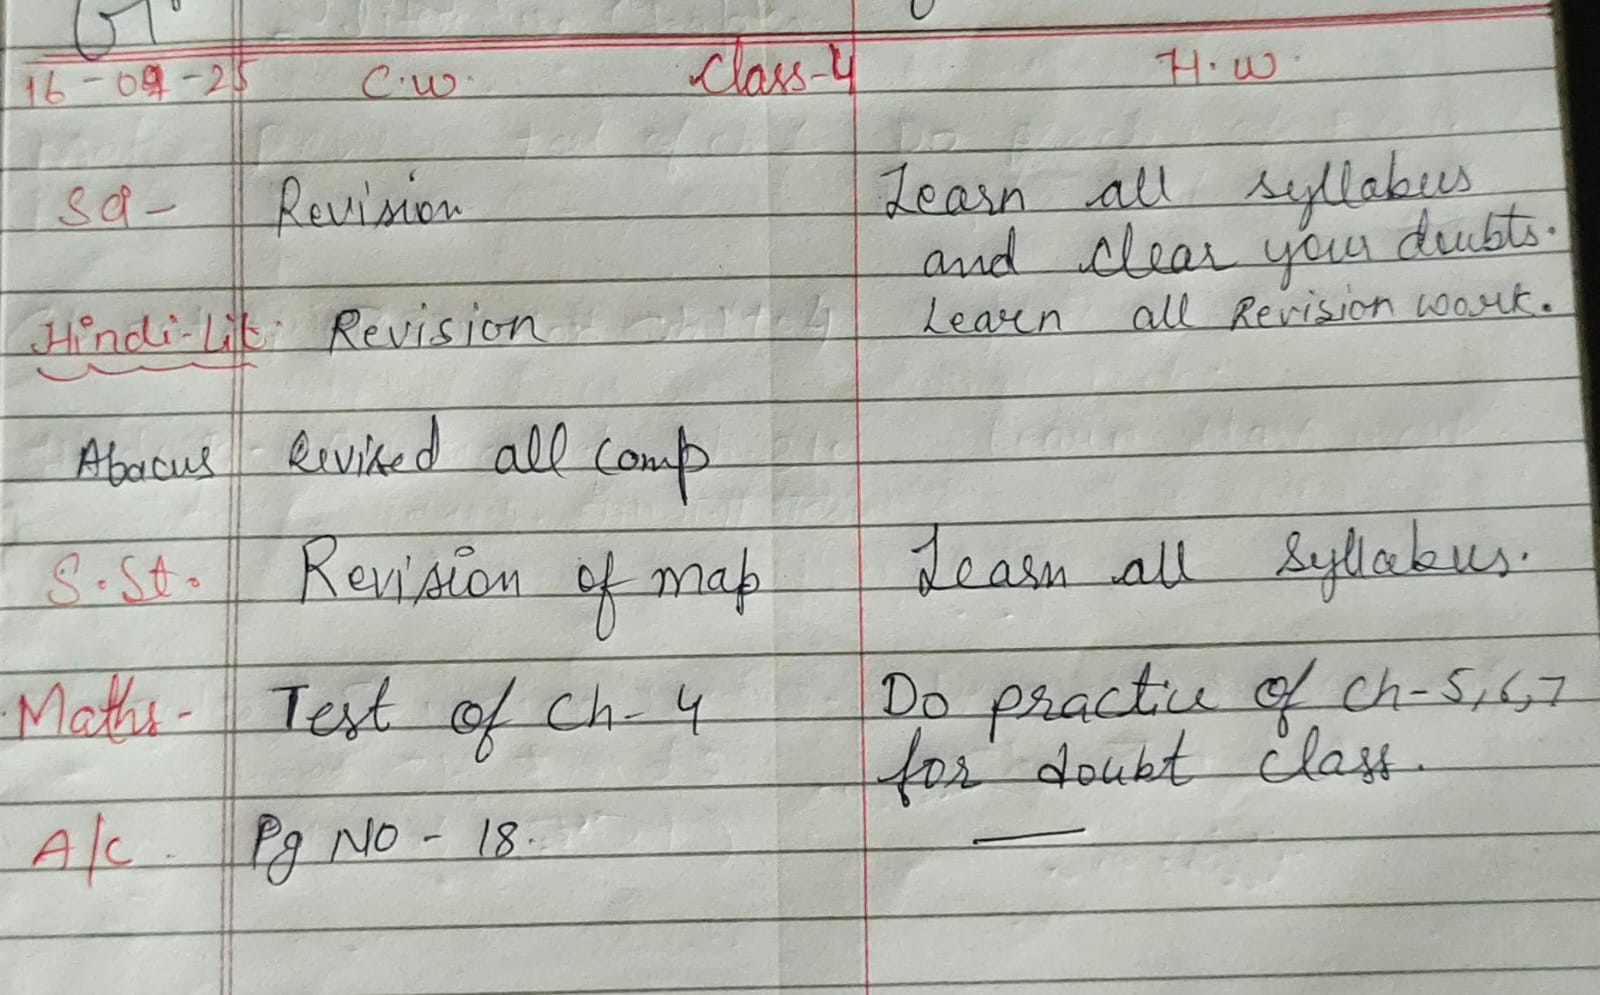 16-09-25 C.W. Class-4 H.W.
Revision Learn all syllabus
and clear your doubts.
Hindi-Lit: Revision Learn all Revision work.
Abacus Revised all comp
S.St. Revision of map Learn all Syllabus.
Maths- Test of Ch-4 Do practice of Ch-5,6,7
for doubt class.
A/C. Pg NO - 18.